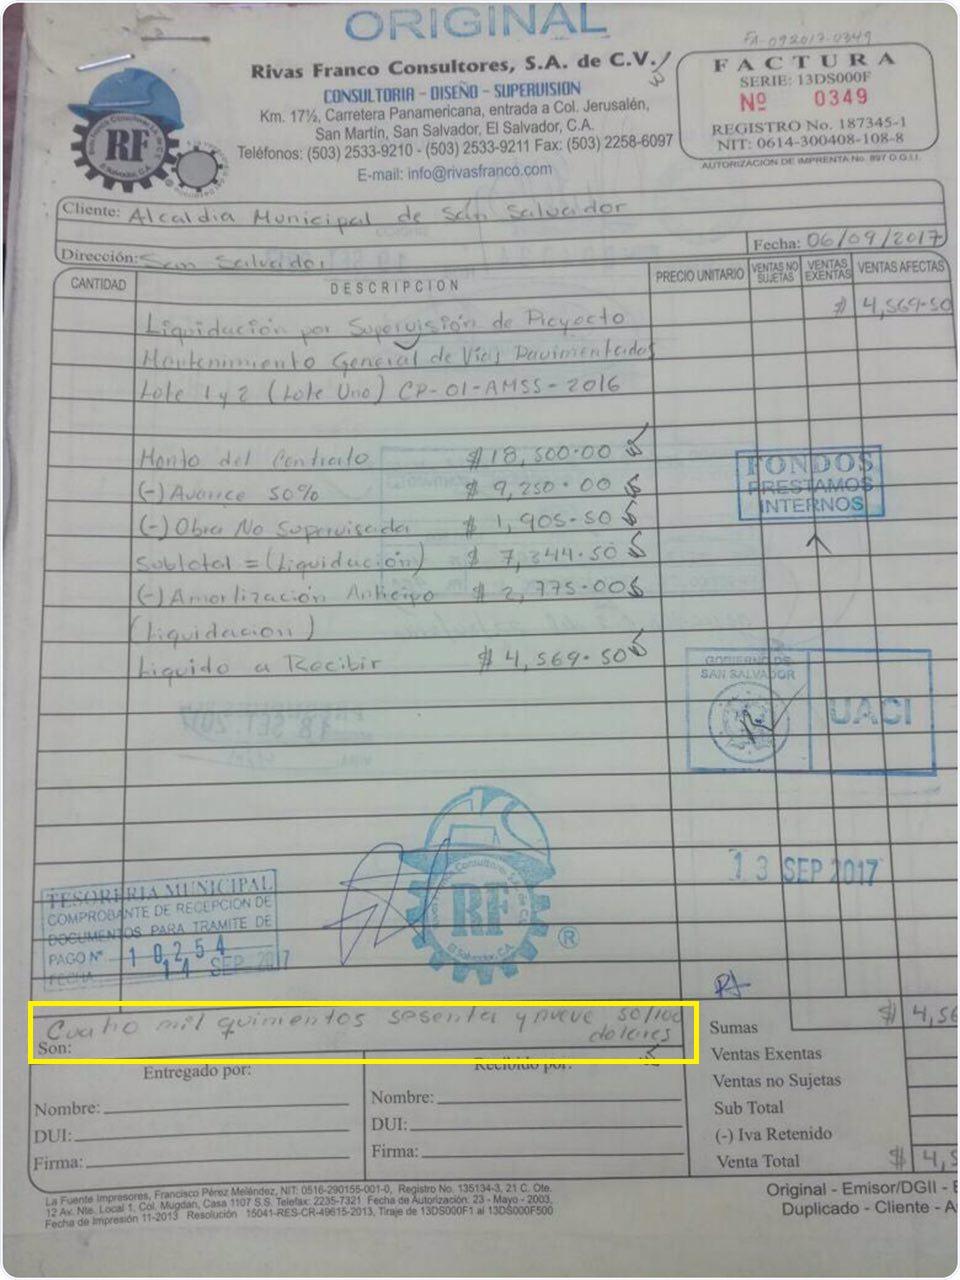 ORIGINAL
FA-092017-0349
Rivas Franco Consultores, S.A. de C.V.
CONSULTORIA - DISEÑO - SUPERVISION
Km. 17½, Carretera Panamericana, entrada a Col. Jerusalén,
San Martín, San Salvador, El Salvador, C.A.
Teléfonos: (503) 2533-9210 - (503) 2533-9211 Fax: (503) 2258-6097
E-mail: info@rivasfranco.com
RF
FACTURA
SERIE: 13DS000F
Nº 0349
REGISTRO No. 187345-1
NIT: 0614-300408-108-8
AUTORIZACION DE IMPRENTA No. 897 D.G.I.I.
Cliente: Alcaldia Municipal de San Salvador
Fecha: 06/09/2017
Dirección: San Salvador
CANTIDAD DESCRIPCION PRECIO UNITARIO VENTAS NO SUJETAS VENTAS EXENTAS VENTAS AFECTAS
Liquidación por Supervisión de Proyecto $ 4,569.50
Mantenimiento General de Vias Pavimentadas
Lote 1 y 2 (Lote Uno) CP-01-AMSS-2016
Monto del Contrato $ 18,500.00
(-) Avance 50% $ 9,250.00
(-) Obra No Supervisada $ 1,905.50
Subtotal = (Liquidación) $ 7,344.50
(-) Amortización Anticipo $ 2,775.00
(Liquidacion)
Liquido a Recibir $ 4,569.50
FONDOS
PRESTAMOS
INTERNOS
GOBIERNO DE
SAN SALVADOR
UACI
13 SEP 2017
TESORERIA MUNICIPAL
COMPROBANTE DE RECEPCION DE
DOCUMENTOS PARA TRAMITE DE
PAGO Nº 10254
FECHA 14 SEP 2017
Rivas Franco Consultores, S.A. de C.V.
RF
El Salvador, C.A.
®
Cuatro mil quinientos sesenta y nueve 50/100
dolares
Son:
Entregado por:
Nombre:
DUI:
Firma:
Recibido por:
Nombre:
DUI:
Firma:
Sumas $ 4,56
Ventas Exentas
Ventas no Sujetas
Sub Total
(-) Iva Retenido
Venta Total $ 4,5
La Fuente Impresores, Francisco Pérez Meléndez, NIT: 0516-290155-001-0, Registro No. 135134-3, 21 C. Ote.
12 Av. Nte. Local 1, Col. Mugdan, Casa 1107 S.S. Telefax: 2235-7321 Fecha de Autorización. 23 - Mayo - 2003,
Fecha de Impresión 11-2013 Resolución 15041-RES-CR-49615-2013, Tiraje de 13DS000F1 al 13DS000F500
Original - Emisor/DGII -
Duplicado - Cliente -